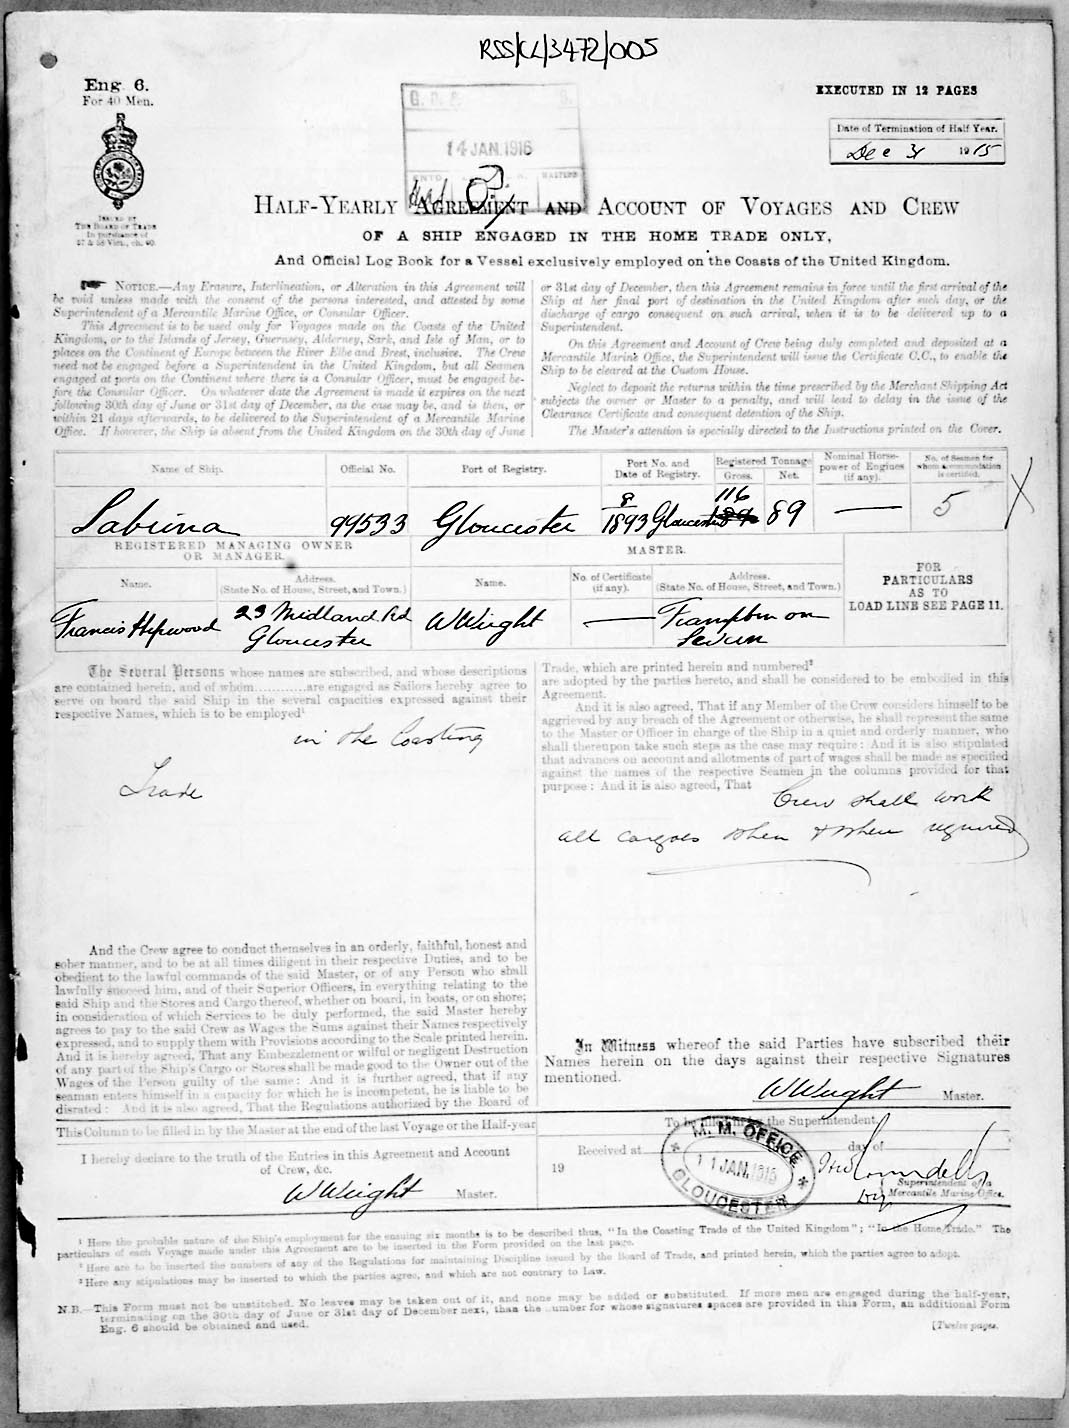 RSS/CL/3472/005
Eng. 6.
For 40 Men.
EXECUTED IN 12 PAGES
Date of Termination of Half Year.
Dec 31 1915
14 JAN. 1916
ISSUED BY
THE BOARD OF TRADE
In pursuance of
57 & 58 Vict., ch. 60.
HALF-YEARLY AGREEMENT AND ACCOUNT OF VOYAGES AND CREW
OF A SHIP ENGAGED IN THE HOME TRADE ONLY,
And Official Log Book for a Vessel exclusively employed on the Coasts of the United Kingdom.
NOTICE.—Any Erasure, Interlineation, or Alteration in this Agreement will
be void unless made with the consent of the persons interested, and attested by some
Superintendent of a Mercantile Marine Office, or Consular Officer.
This Agreement is to be used only for Voyages made on the Coasts of the United
Kingdom, or to the Islands of Jersey, Guernsey, Alderney, Sark, and Isle of Man, or to
places on the Continent of Europe between the River Elbe and Brest, inclusive. The Crew
need not be engaged before a Superintendent in the United Kingdom, but all Seamen
engaged at ports on the Continent where there is a Consular Officer, must be engaged be-
fore the Consular Officer. On whatever date the Agreement is made it expires on the next
following 30th day of June or 31st day of December, as the case may be, and is then, or
within 21 days afterwards, to be delivered to the Superintendent of a Mercantile Marine
Office. If however, the Ship is absent from the United Kingdom on the 30th day of June
or 31st day of December, then this Agreement remains in force until the first arrival of the
Ship at her final port of destination in the United Kingdom after such day, or the
discharge of cargo consequent on such arrival, when it is to be delivered up to a
Superintendent.
On this Agreement and Account of Crew being duly completed and deposited at a
Mercantile Marine Office, the Superintendent will issue the Certificate C.C., to enable the
Ship to be cleared at the Custom House.
Neglect to deposit the returns within the time prescribed by the Merchant Shipping Act
subjects the owner or Master to a penalty, and will lead to delay in the issue of the
Clearance Certificate and consequent detention of the Ship.
The Master's attention is specially directed to the Instructions printed on the Cover.
Name of Ship. Official No. Port of Registry. Port No. and Date of Registry. Registered Tonnage Gross. Net. Nominal Horse-power of Engines (if any). No. of Seamen for whom accommodation is certified.
Sabrina 99533 Gloucester 8/1893 Gloucester 116 89 89 — 5 X
REGISTERED MANAGING OWNER
OR MANAGER.
MASTER.
FOR
PARTICULARS
AS TO
LOAD LINE SEE PAGE 11.
Name. Address. (State No. of House, Street, and Town.) Name. No. of Certificate (if any). Address. (State No. of House, Street, and Town.)
Francis Hipwood 23 Midland Rd Gloucester W Wright — Frampton on Severn
The Several Persons whose names are subscribed, and whose descriptions
are contained herein, and of whom............are engaged as Sailors hereby agree to
serve on board the said Ship in the several capacities expressed against their
respective Names, which is to be employed¹
in the Coasting
Trade
And the Crew agree to conduct themselves in an orderly, faithful, honest and
sober manner, and to be at all times diligent in their respective Duties, and to be
obedient to the lawful commands of the said Master, or of any Person who shall
lawfully succeed him, and of their Superior Officers, in everything relating to the
said Ship and the Stores and Cargo thereof, whether on board, in boats, or on shore;
in consideration of which Services to be duly performed, the said Master hereby
agrees to pay to the said Crew as Wages the Sums against their Names respectively
expressed, and to supply them with Provisions according to the Scale printed herein.
And it is hereby agreed, That any Embezzlement or wilful or negligent Destruction
of any part of the Ship's Cargo or Stores shall be made good to the Owner out of the
Wages of the Person guilty of the same: And it is further agreed, that if any
seaman enters himself in a capacity for which he is incompetent, he is liable to be
disrated: And it is also agreed, That the Regulations authorized by the Board of
Trade, which are printed herein and numbered²
are adopted by the parties hereto, and shall be considered to be embodied in this
Agreement.
And it is also agreed, That if any Member of the Crew considers himself to be
aggrieved by any breach of the Agreement or otherwise, he shall represent the same
to the Master or Officer in charge of the Ship in a quiet and orderly manner, who
shall thereupon take such steps as the case may require: And it is also stipulated
that advances on account and allotments of part of wages shall be made as specified
against the names of the respective Seamen in the columns provided for that
purpose: And it is also agreed, That
Crew shall work
all cargoes when & where required
In Witness whereof the said Parties have subscribed their
Names herein on the days against their respective Signatures
mentioned.
W Wright Master.
This Column to be filled in by the Master at the end of the last Voyage or the Half-year
I hereby declare to the truth of the Entries in this Agreement and Account
of Crew, &c.
W Wright Master.
To be filled in by the Superintendent.
Received at
day of
19
M. M. OFFICE
11 JAN. 1916
GLOUCESTER
Superintendent of a
Dy Mercantile Marine Office.
¹ Here the probable nature of the Ship's employment for the ensuing six months is to be described thus, "In the Coasting Trade of the United Kingdom"; "In the Home Trade." The
particulars of each Voyage made under this Agreement are to be inserted in the Form provided on the last page.
² Here are to be inserted the numbers of any of the Regulations for maintaining Discipline issued by the Board of Trade, and printed herein, which the parties agree to adopt.
³ Here any stipulations may be inserted to which the parties agree, and which are not contrary to Law.
N.B.—This Form must not be unstitched. No leaves may be taken out of it, and none may be added or substituted. If more men are engaged during the half-year,
terminating on the 30th day of June or 31st day of December next, than the number for whose signatures spaces are provided in this Form, an additional Form
Eng. 6 should be obtained and used.
[Twelve pages.